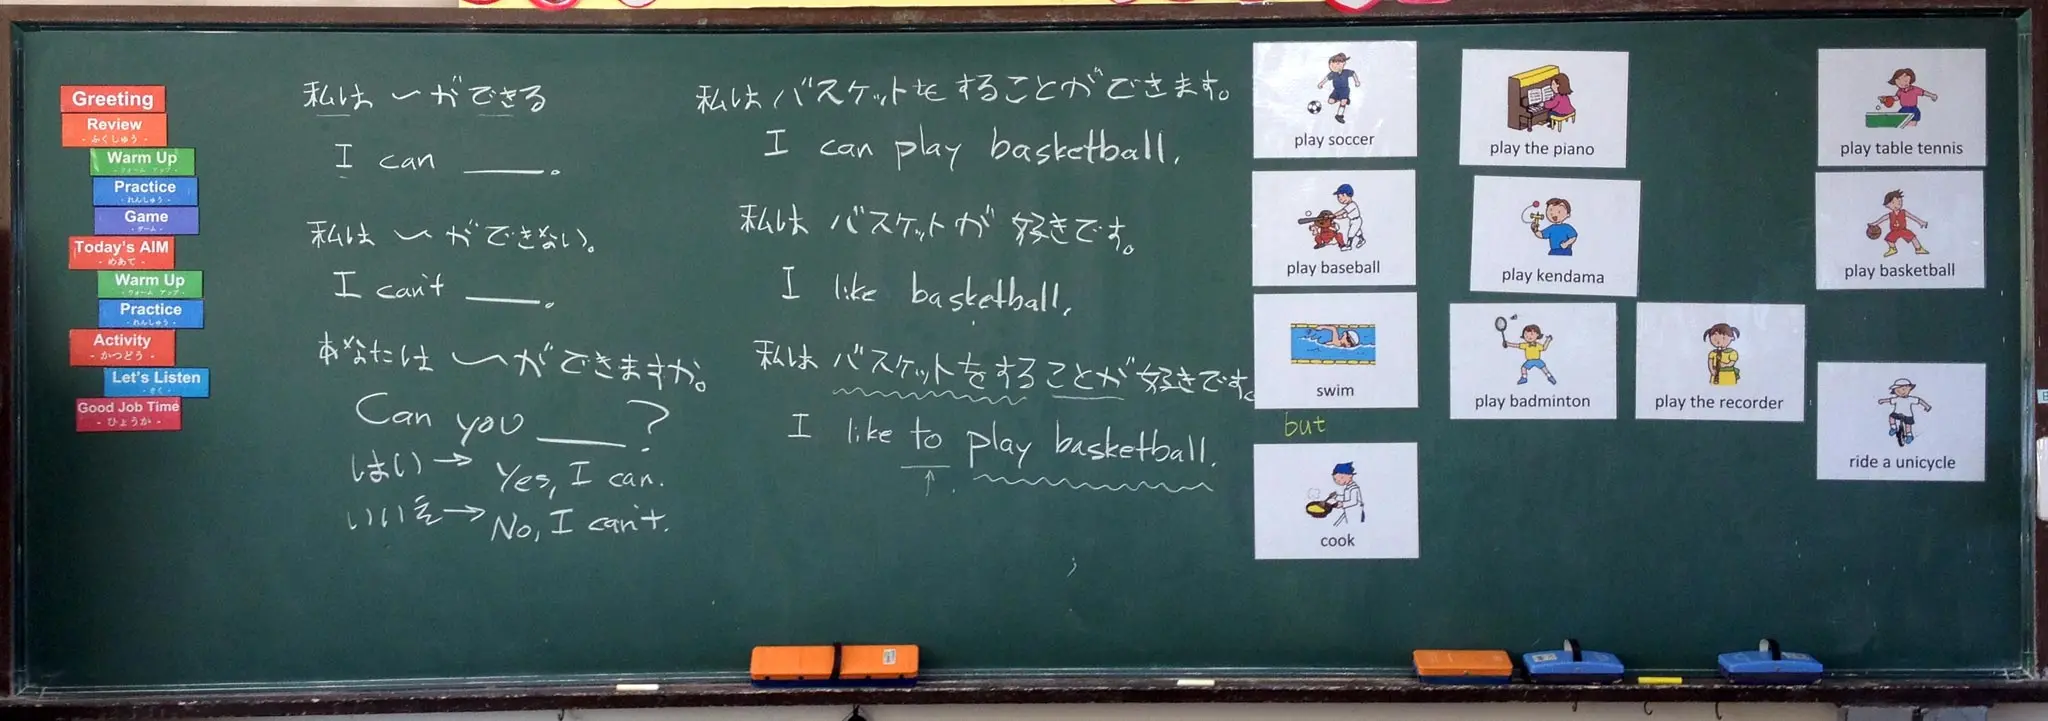 Greeting
Review
- ふくしゅう -
Warm Up
- ウォーム アップ -
Practice
- れんしゅう -
Game
- ゲーム -
Today's AIM
- めあて -
Warm Up
- ウォーム アップ -
Practice
- れんしゅう -
Activity
- かつどう -
Let's Listen
- きく -
Good Job Time
- ひょうか -
私は 〜ができる
I can ____.
私は 〜ができない。
I can't ____.
あなたは 〜ができますか。
Can you ____?
はい → Yes, I can.
いいえ → No, I can't.
私は バスケットをすることができます。
I can play basketball.
私は バスケットが 好きです。
I like basketball.
私は バスケットをすることが好きです。
I like to play basketball.
play soccer
play baseball
swim
but
cook
play the piano
play kendama
play badminton
play the recorder
play table tennis
play basketball
ride a unicycle